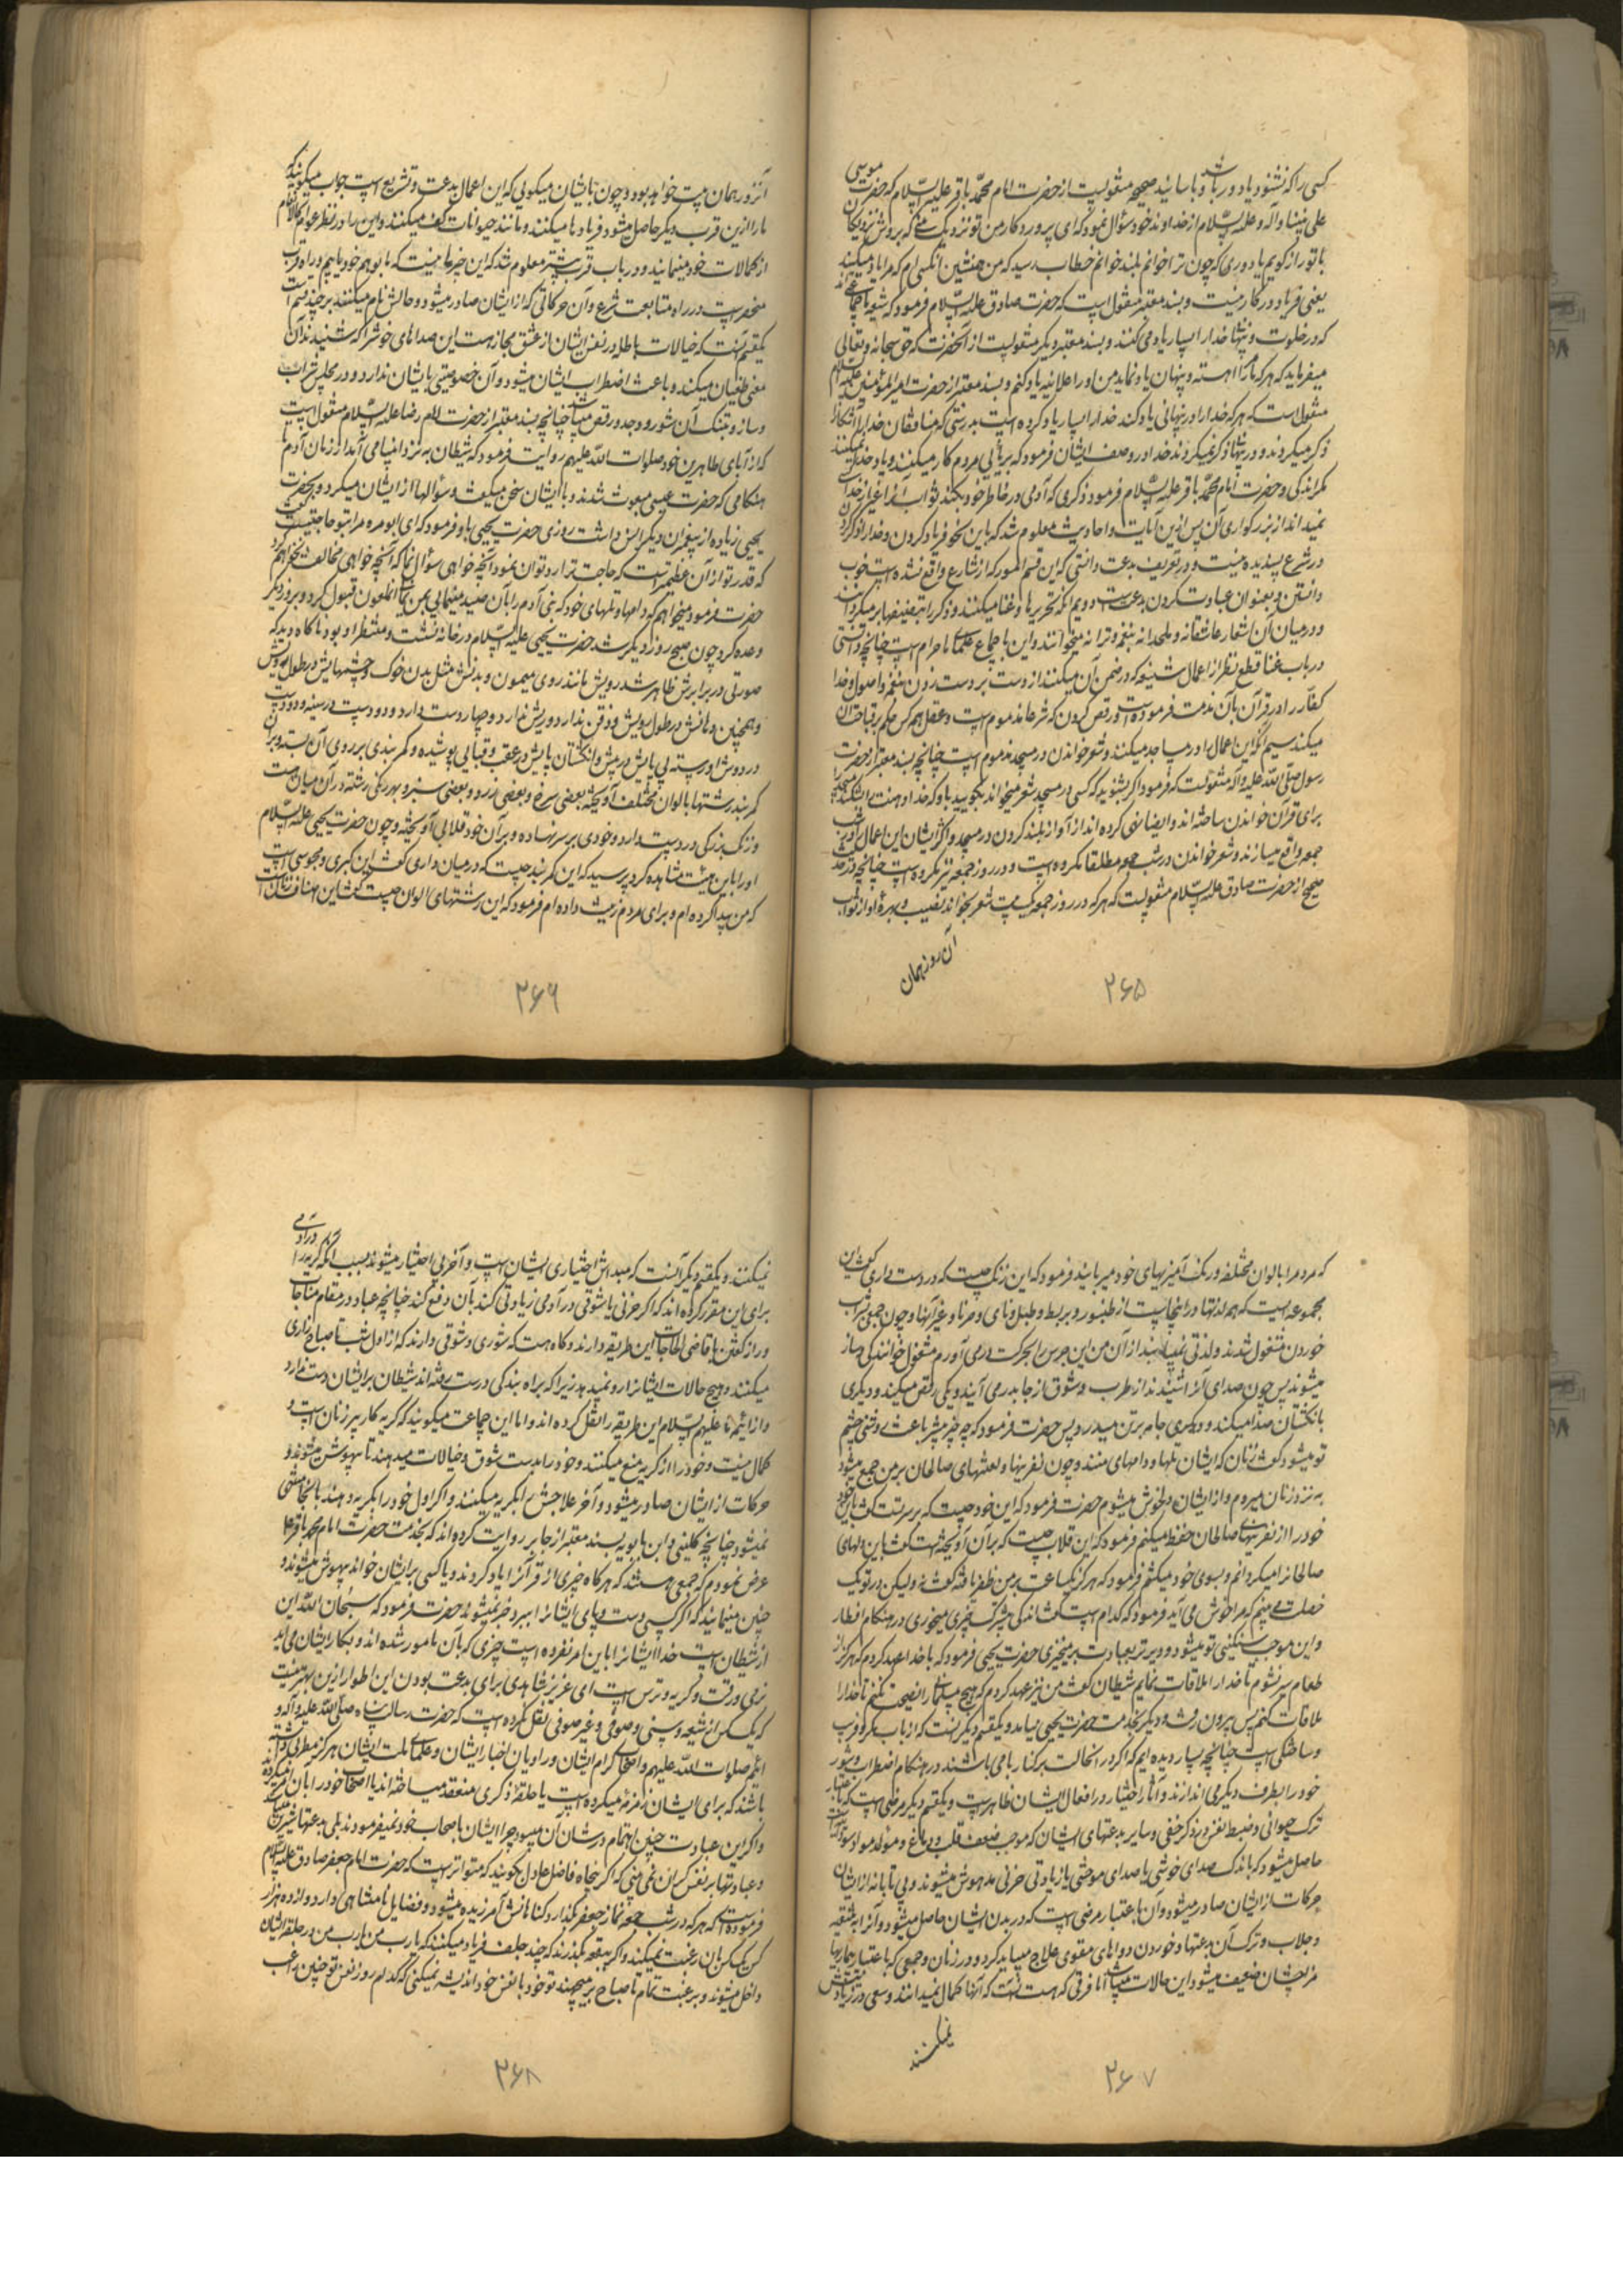 کسی را که نشنود یا دور باشد و با سانید صحیحه منقولست از حضرت امام محمد باقر علیه السلام که حضرت موسی
علی نبینا وآله وعلیه السلام از خداوند خود سؤال نمود که ای پروردگار من تو نزدیکی بمن که بروش نزدیکان
با تو راز گویم یا دوری که چون ترا خوانم بلند خوانم خطاب رسید که من همنشین آنکسی ام که مرا یاد میکند
یعنی فریاد در کار نیست و بسند معتبر منقول است که حضرت صادق علیه السلام فرمود که شیعه ما جماعتی اند
که در خلوت و تنهائی خدا را بسیار یاد می کنند و بسند معتبر دیگر منقولست از آنحضرت که حق سبحانه وتعالی
میفرماید که هر که مرا آهسته و پنهان یاد نماید من او را علانیه یاد کنم و بسند معتبر از حضرت امیرالمؤمنین علیه السلام
منقول است که هر که خدا را در پنهانی یاد کند خدا را بسیار یاد کرده است بدرستی که منافقان خدا را آشکارا
ذکر میکردند و در پنهان ذکر نمیکردند خدا در وصف ایشان فرمود که بریائی مردم کار میکنند و یاد خدا نمیکنند
مگر اندکی و حضرت امام محمد باقر علیه السلام فرمود ذکری که آدمی در خاطر خود بکند ثواب آنرا غیر از خدا کسی
نمیداند از بزرگواری آن پس ازین آیات و احادیث معلوم شد که باین نحو فریاد کردن و خدا را ذکر کردن
در شرع پسندیده نیست و در تعریف بدعت دانستی که این قسم امور که از شارع واقع نشده است خوب
دانستن و بعنوان عبادت کردن بدعت است دویم آنکه تحریرها و غنا میکنند و ذکر را بتصنیفها بر میگردانند
و در میان آن اشعار عاشقانه و ملحدانه بنغمه و ترانه میخوانند و این باجماع علما ما حرام است چنانچه دانستی
در باب غنا قطع نظر از اعمال شنیعه که در ضمن آن میکنند از دست بر دست زدن بنغمه و اصول و خدا
کفار را در قرآن بآن مذمت فرموده است و رقص کردن که شرعا مذموم است و عقل همه کس حکم بر قباحت آن
میکند سیم آنکه این اعمال را در مساجد میکنند و شعر خواندن در مسجد مذموم است چنانچه بسند معتبر از حضرت
رسول صلی الله علیه وآله منقولست که فرمود اگر بشنوید که کسی در مسجد شعر میخواند بگویید باو که خدا دهنت را بشکند مسجد را
برای قرآن خواندن ساخته اند و ایضا نهی کرده اند از آواز بلند کردن در مسجد و اکثر ایشان این اعمال را در شب
جمعه واقع میسازند و شعر خواندن در شب جمعه مطلقا مکروه است و در روز جمعه نیز مکروه است چنانچه در حدیث
صحیح از حضرت صادق علیه السلام منقولست که هر که در روز جمعه یک بیت شعر بخواند نصیب و بهره او از ثواب
آن روز همان
۲۶۵
آنروز همان بیت خواهد بود و چون بایشان میگویی که این اعمال بدعت و تشریع است جواب میگویند که
ما را ازین قرب دیگر حاصل میشود فریادها میکنند و مانند حیوانات کف میکنند و این را در نظر عوام کالانعام
از کمالات خود مینمایند و در باب قرب بیشتر معلوم شد که این خیرها نیست که ما بوهم خود یابیم و راه قرب
منحصر است در راه متابعت شرع و آن حرکاتی که از ایشان صادر میشود و حالش نام میکنند بر چند قسم است
یکقسم آنست که خیالات باطله در نفس ایشان از عشق مجاز هست این صداهای خوش را که شنیدند آن
معنی طغیان میکند و باعث اضطراب ایشان میشود و آن خصوصیتی بایشان ندارد و در مجلس شراب
و ساز و تنبک آن شور و وجد و رقص میباشد چنانچه بسند معتبر از حضرت امام رضا علیه السلام منقول است
که از آبای طاهرین خود صلوات الله علیهم روایت فرمود که شیطان به نزد انبیا می آمد از زمان آدم تا
هنگامی که حضرت عیسی مبعوث شدند و با ایشان سخن میگفت و سؤالها از ایشان میکرد و بحضرت
یحیی زیاده از پیغمبران دیگر انس داشت روزی حضرت یحیی باو فرمود که ای ابو مره مرا بتو حاجتیست گفت
که قدر تو از آن عظیمتر است که حاجت ترا رد توان نمود آنچه خواهی سؤال نما که آنچه خواهی مخالفت نخواهم کرد
حضرت فرمود میخواهم که دامها و تلهای خود که بنی آدم را بآن صید مینمایی بمن نمائی آنملعون قبول کرد و بروز دیگر
وعده کرد چون صبح روز دیگر شد حضرت یحیی علیه السلام در خانه نشست و منتظر او بود ناگاه دید که
صورتی در برابرش ظاهر شد رویش مانند روی میمون و بدنش مثل بدن خوک و چشمهایش در طول رویش
و همچنین دهانش در طول رویش و ذقن ندارد و ریش ندارد و چهار دست دارد و دو دست در سینه و دو دست
در دوش او رسته پی پایش در پیش و انگشتان پایش در عقب و قبایی پوشیده و کمربندی بر روی آن بسته و بر آن
کمربند رشتها بالوان مختلف آویخته بعضی سرخ و بعضی زرد و بعضی سبز و بهر رنگی رشته در آن میان هست
و زنگ بزرگی در دست دارد و خودی بر سر نهاده و بر آن خود قلابی آویخته و چون حضرت یحیی علیه السلام
او را باین هیئت مشاهده کرد پرسید که این کمربند چیست که در میان داری گفت این گبری و مجوسی است
که من پیدا کرده ام و برای مردم زینت داده ام فرمود که این رشتهای الوان چیست گفت این اصناف زنانست
۲۶۶
که مردم را بالوان مختلفه و رنگ آمیزیهای خود میربایند فرمود که این زنگ چیست که در دست داری گفت این
مجموعه ایست که همه لذتها در اینجاست از طنبور و بربط و طبل و نای و صرنا و غیر آنها و چون جمعی بشراب
خوردن مشغول شدند و لذتی نمییابند از آن من این جرس را بحرکت در می آورم مشغول خوانندگی و ساز
میشوند پس چون صدای آنرا شنیدند از طرب و شوق از جا بدر می آیند و یکی رقص میکند و دیگری
بانگشتان صدا میکند و دیگری جامه بر تن میدرد پس حضرت فرمود که چه چیز بیشتر باعث روشنی چشم
تو میشود گفت زنان که ایشان تلها و دامهای منند و چون نفرینها و لعنتهای صالحان بر من جمع میشود
به نزد زنان میروم و از ایشان دلخوش میشوم حضرت فرمود که این خود چیست که بر سر تست گفت باین خود
خود را از نفرینهای صالحان حفظ میکنم فرمود که این قلاب چیست که بر آن آویخته است گفت باین دلهای
صالحانرا میگردانم و بسوی خود میکشم فرمود که هرگز یکساعت بر من ظفر یافته گفت نه ولیکن در تو یک
خصلت می بینم که مرا خوش می آید فرمود که کدام است گفت اندکی بیشترک چیزی میخوری در هنگام افطار
و این موجب سنگینی تو میشود و دیرتر بعبادت برمیخیزی حضرت یحیی فرمود که با خدا عهد کردم که هرگز از
طعام سیر نشوم تا خدا را ملاقات نمایم شیطان گفت من نیز عهد کردم که هیچ مسلمان را نصیحت نکنم تا خدا را
ملاقات کنم پس بیرون رفت و دیگر بخدمت حضرت یحیی نیامد و یکقسم دیگر آنست که از باب مکر و فریب
و ساختگی است چنانچه بسیار دیده ایم که اگر در انحالت بر کنار بامی باشند در هنگام اضطراب و شور
خود را بطرف دیگر می اندازند و آثار اختیار در افعال ایشان ظاهر است و یکقسم دیگر مرضی است که باعتبار
ترک حیوانی و ضبط نفس در ذکر خفی و سایر بدعتهای ایشان که موجب ضعف قلب و دماغ و مولد مواد سوداست
حاصل میشود که باندک صدای خوشی یا صدای موحشی یا زیادتی حزنی مدهوش میشوند و بی تابانه از ایشان
حرکات صادر میشود و آن باعتبار مرضی است که در بدن ایشان حاصل میشود و آنرا به تنقیه
و جلاب و ترک آن بدعتها و خوردن دواهای مقوی علاج میباید کرد و در زنان و جمعی که باعتبار بیماریها
مزاجشان ضعیف میشود این حالات میباشد اما فرقی که هست آنست که آنها کمال نمیدانند و سعی در زیادتیش
نمیکنند
۲۶۷
نمیکنند و یکقسم دیگر آنست که مبداش اختیاری ایشان است و آخر بی اختیار میشوند بسبب آنکه گریه را در آدمی
برای این مقرر کرده اند که اگر حزنی یا شوقی در آدمی زیادتی کند بآن دفع کند چنانچه عباد در مقام مناجات
و راز گفتن با قاضی الحاجات این طریقه دارند و گاه هست که شوری و شوقی دارند که از اول شب تا صباح زاری
میکنند و هیچ حالات ایشانرا رو نمیدهد زیرا که براه بندگی درست رفته اند شیطان بر ایشان دست ندارد
و از ائمه ما علیهم السلام این طریقه را نقل کرده اند و اما این جماعت میگویند که گریه کار پیر زنان است و
کمال نیست و خود را از گریه منع میکنند و خود را بدست شوق و خیالات میدهند تا بیهوش میشوند و
حرکات از ایشان صادر میشود و آخر علاجش را بگریه میکنند و اگر اول خود را بگریه دهند بانجا منتهی
نمیشود چنانچه کلینی و ابن بابویه بسند معتبر از جابر روایت کرده اند که بخدمت حضرت امام محمد باقر
عرض نمودم که جمعی هستند که هرگاه چیزی از قرآنرا یاد کردند و یا کسی بر ایشان خواند بیهوش میشوند و
چنین مینمایند که اگر کسی دست و پای ایشانرا ببرد خبر نمیشوند حضرت فرمود که سبحان الله این
از شیطان است خدا ایشانرا باین امر نفرموده است چیزی که بآن مامور شده اند و بکار ایشان می آید
نرمی و رقت و گریه و ترس است ای عزیز شاهدی برای بدعت بودن این اطوار ازین بهتر نیست
که یک کس از شیعه و سنی و صوفی و غیر صوفی نقل نکرده است که حضرت رسالت پناه صلی الله علیه وآله و
ائمه صلوات الله علیهم و اصحاب کرام ایشان و راویان اخبار ایشان و علمای ملت ایشان هرگز مطربی داشته
باشند که برای ایشان زمزمه میکرده است یا حلقه ذکری منعقد میساخته اند یا اصحاب خود را بآن امر میکرده
و اگر این عبادت چنین اهتمام در شان آن میبود چرا ایشان باصحاب خود نمیفرمودند بلی بدعتها شیرین
و عبادتها بر نفس گران نمی بینی که اگر پنجاه فاضل عادل بگویند که متواتر است که حضرت امام جعفر صادق علیه السلام
فرموده است که هر که در شب جمعه نماز جعفر بگذارد گناهانش آمرزیده میشود و فضایل نامتناهی دارد و از ده هزار
کس یک کس بآن رغبت نمیکند و اگر ببقعه بگذرند که چند جلف فریاد میکنند که یارب من یارب من در حلقه ایشان
داخل میشوند و برغبت تمام تا صباح بر میجهند تو خود با نفس خود اندیشه نمیکنی که کدام روز نفس تو چنین راغب
۲۶۸